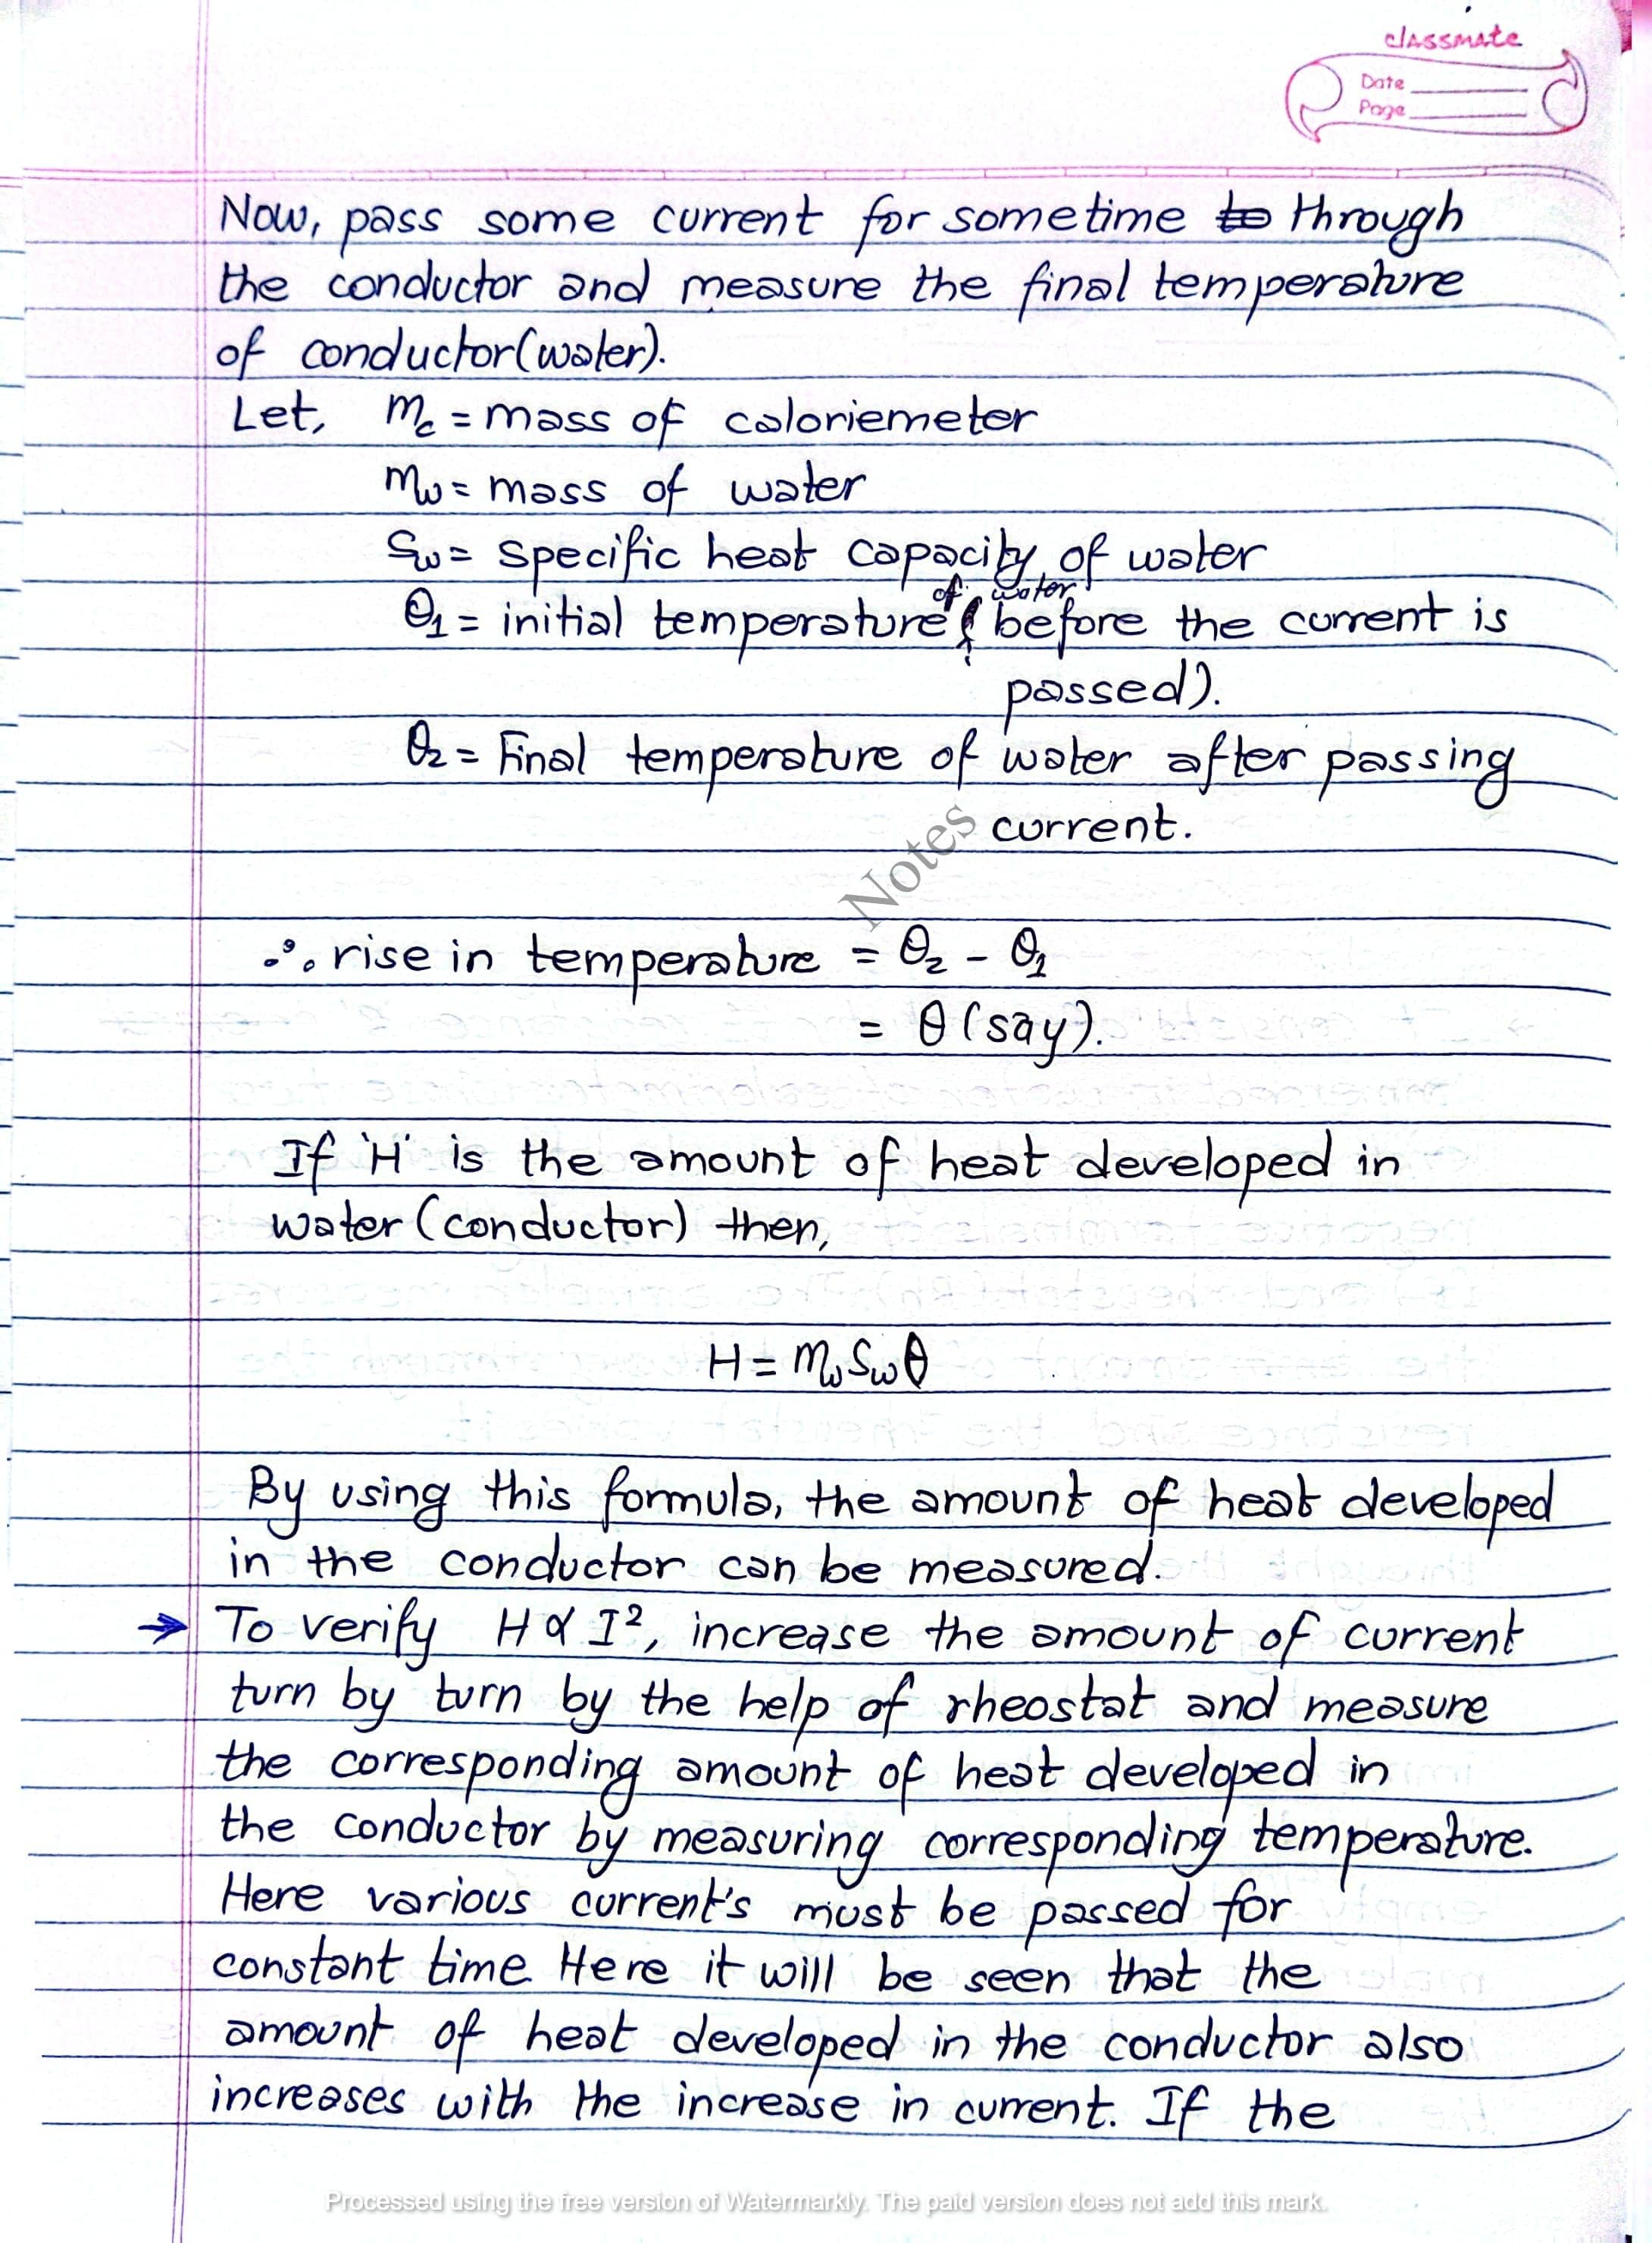 classmate
Date
Page
Now, pass some current for sometime to through
the conductor and measure the final temperature
of conductor(water).
Let, mc = mass of caloriemeter
mw = mass of water
Sw = specific heat capacity of water
of water
θ1 = initial temperature (before the current is
passed).
θ2 = Final temperature of water after passing
current.
Notes
∴ rise in temperature = θ2 - θ1
= θ (say).
If 'H' is the amount of heat developed in
water (conductor) then,
H = mwSwθ
By using this formula, the amount of heat developed
in the conductor can be measured.
→ To verify H ∝ I², increase the amount of current
turn by turn by the help of rheostat and measure
the corresponding amount of heat developed in
the conductor by measuring corresponding temperature.
Here various current's must be passed for
constant time. Here it will be seen that the
amount of heat developed in the conductor also
increases with the increase in current. If the
Processed using the free version of Watermarkly. The paid version does not add this mark.